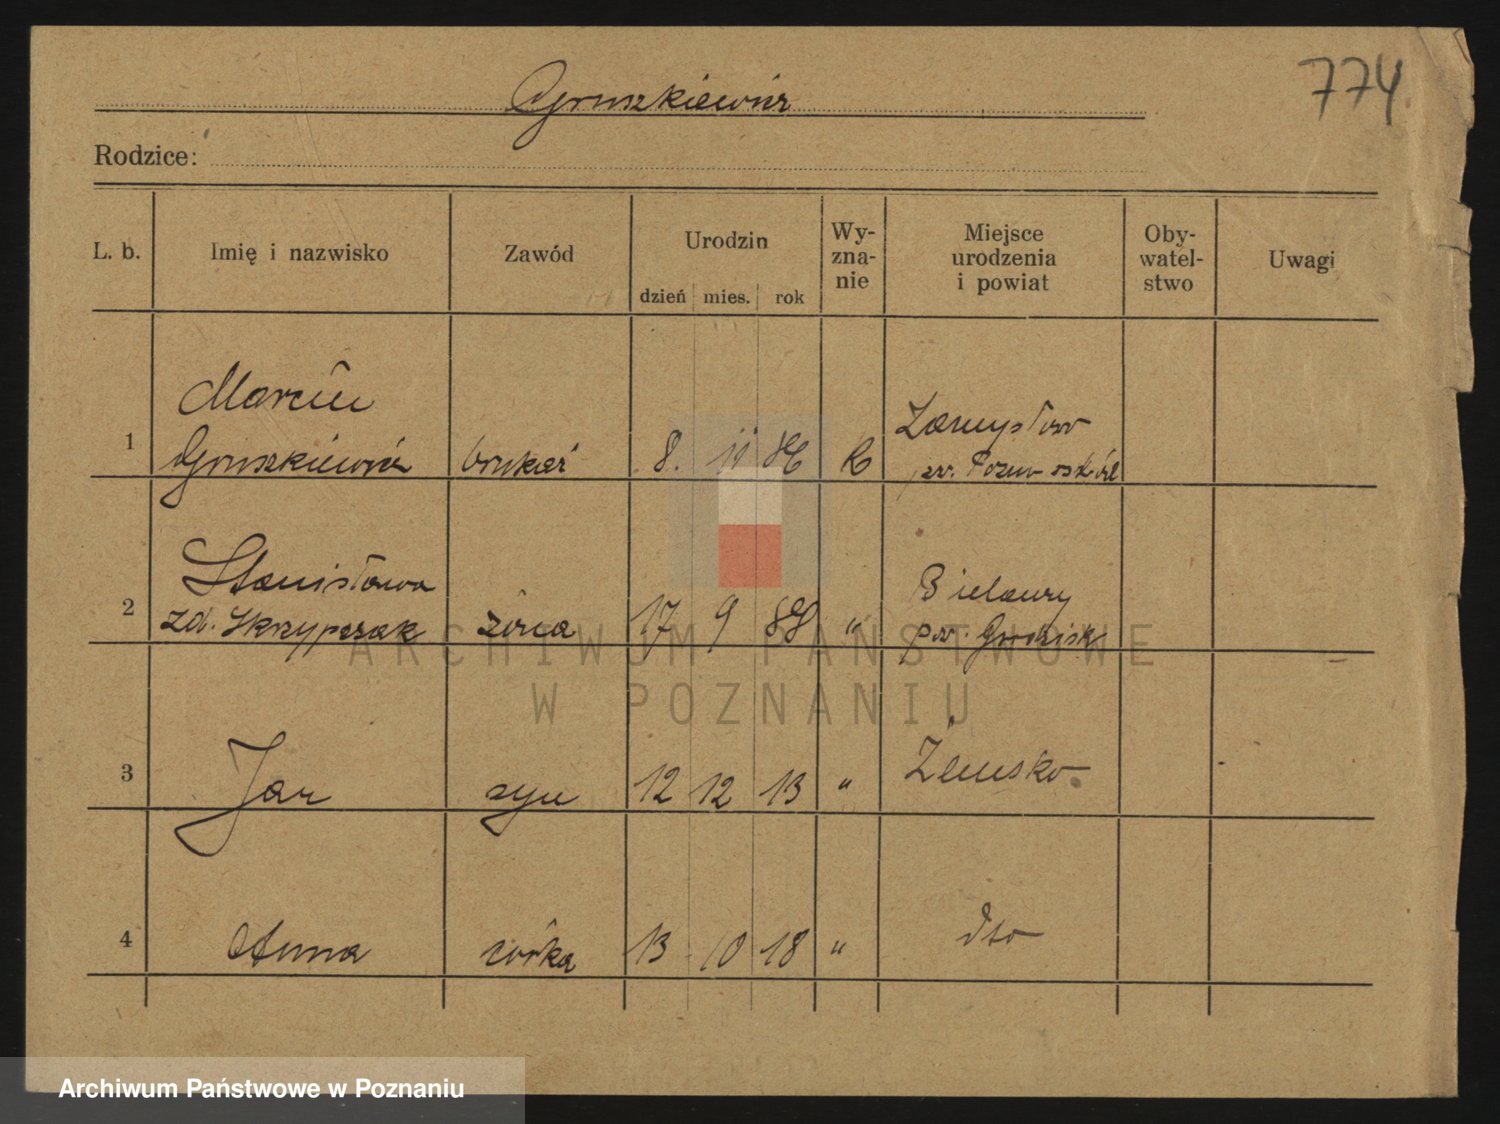 774
Gruszkiewicz
Rodzice:
L. b. Imię i nazwisko Zawód Urodzin dzień mies. rok Wy-zna-nie Miejsce urodzenia i powiat Oby-watel-stwo Uwagi
Marcin
1 Gruszkiewicz brukarz 8. 11 Zamysłow
Stanisława Bielawy
2 zd. Skrzypczak żona 17 9 88 " pow. Grodzisk
3 Jan syn 12 12 13 " Żemsko
4 Anna córka 13 10 18 " dto
ARCHIWUM PAŃSTWOWE
W POZNANIU
Archiwum Państwowe w Poznaniu